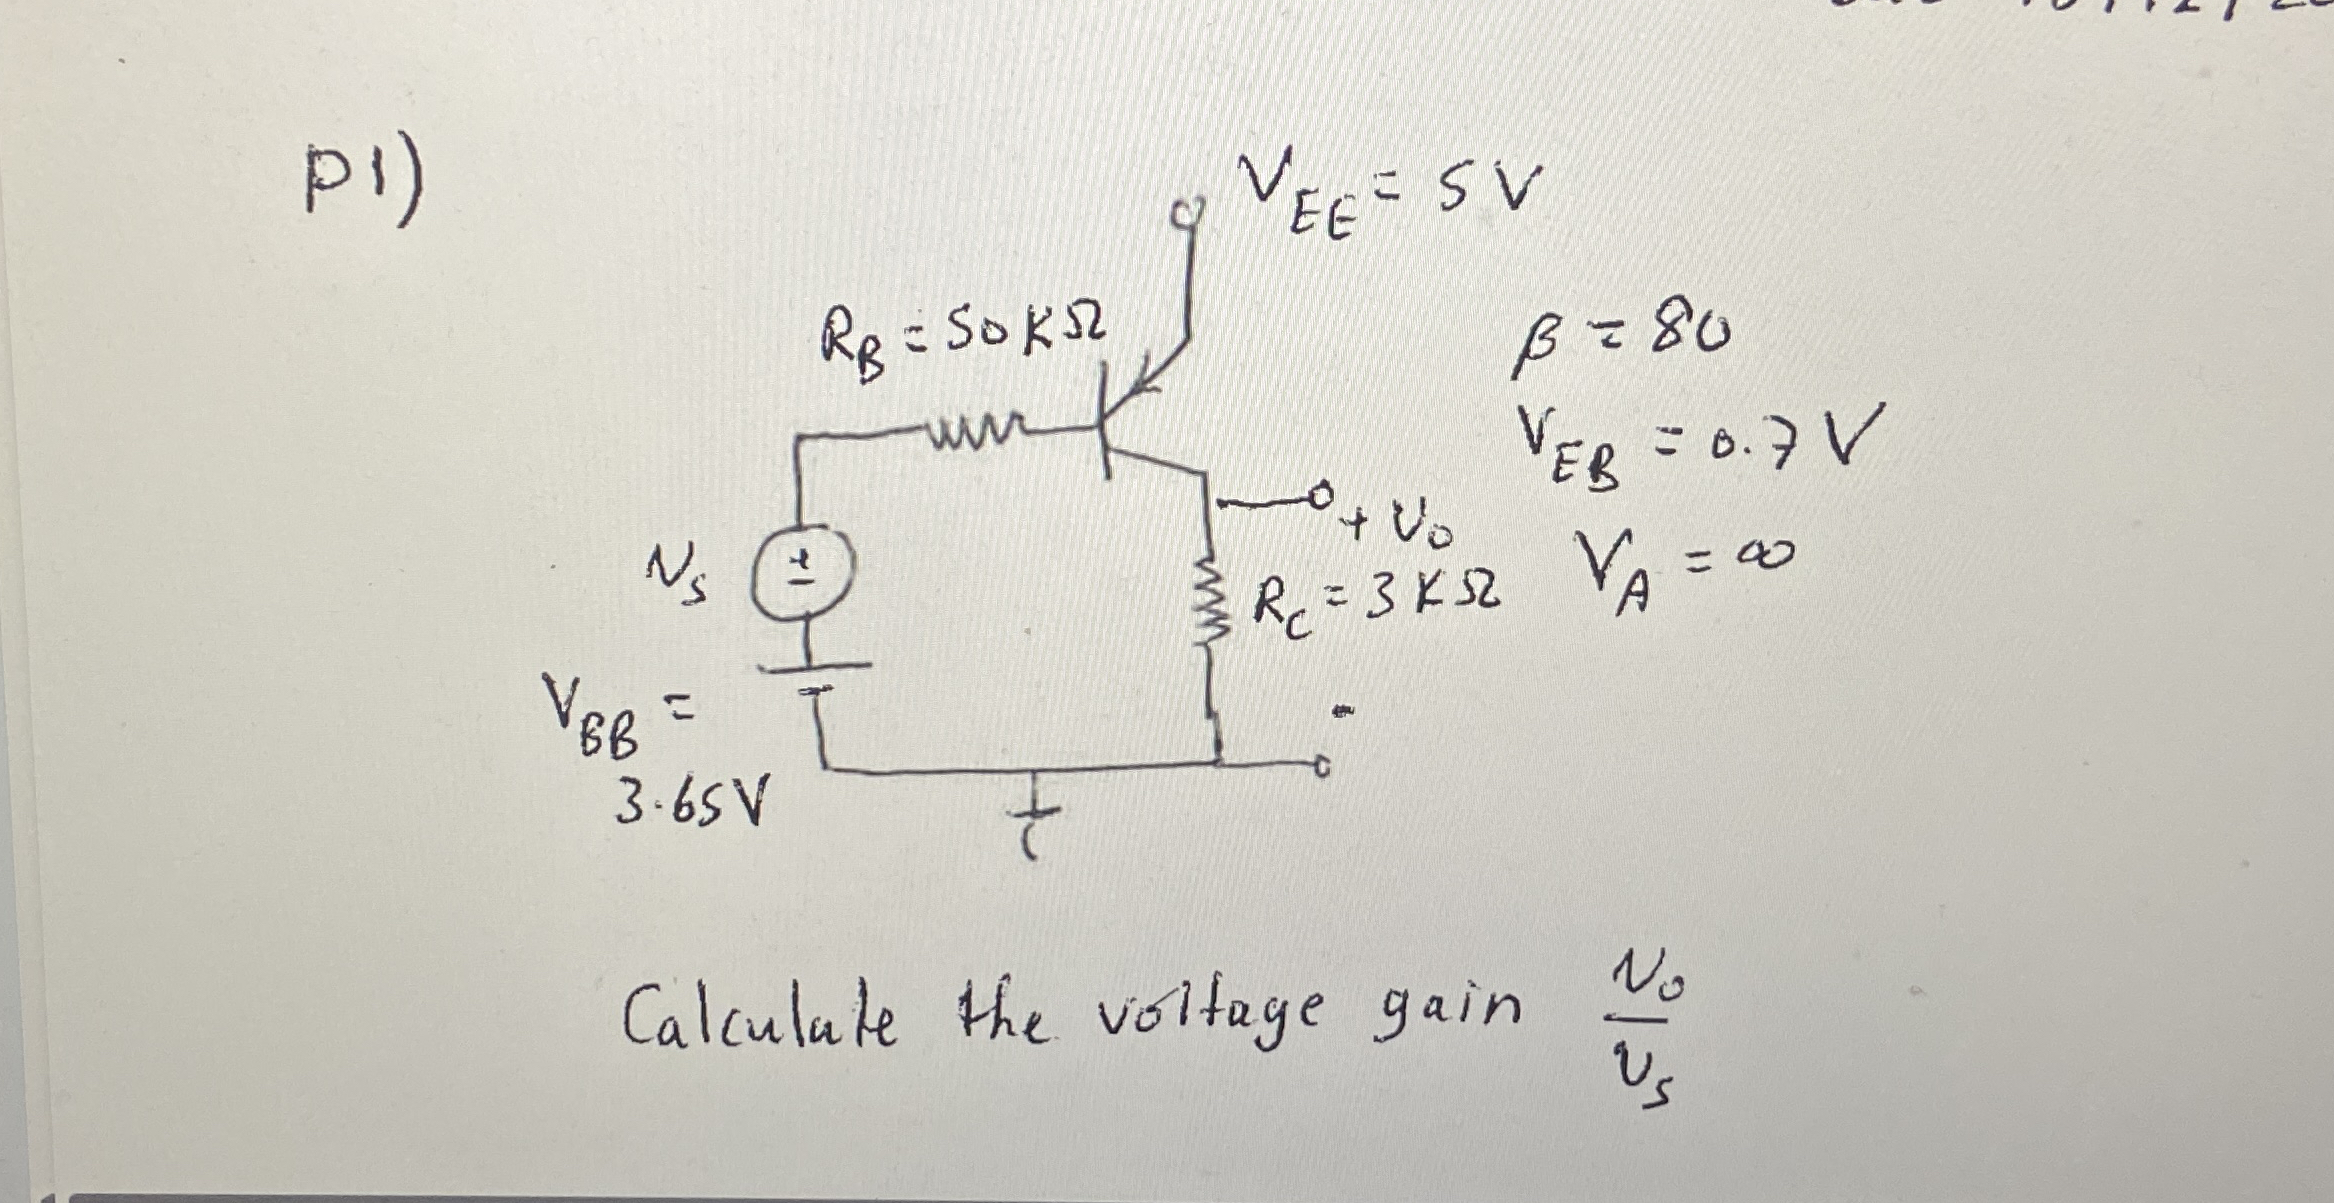 P1)
V_EE = 5 V
R_B = 50 KΩ
β = 80
V_EB = 0.7 V
V_A = ∞
+ V_o
V_s
±
R_C = 3 KΩ
V_BB =
3.65 V
-
Calculate the voltage gain V_o / V_s